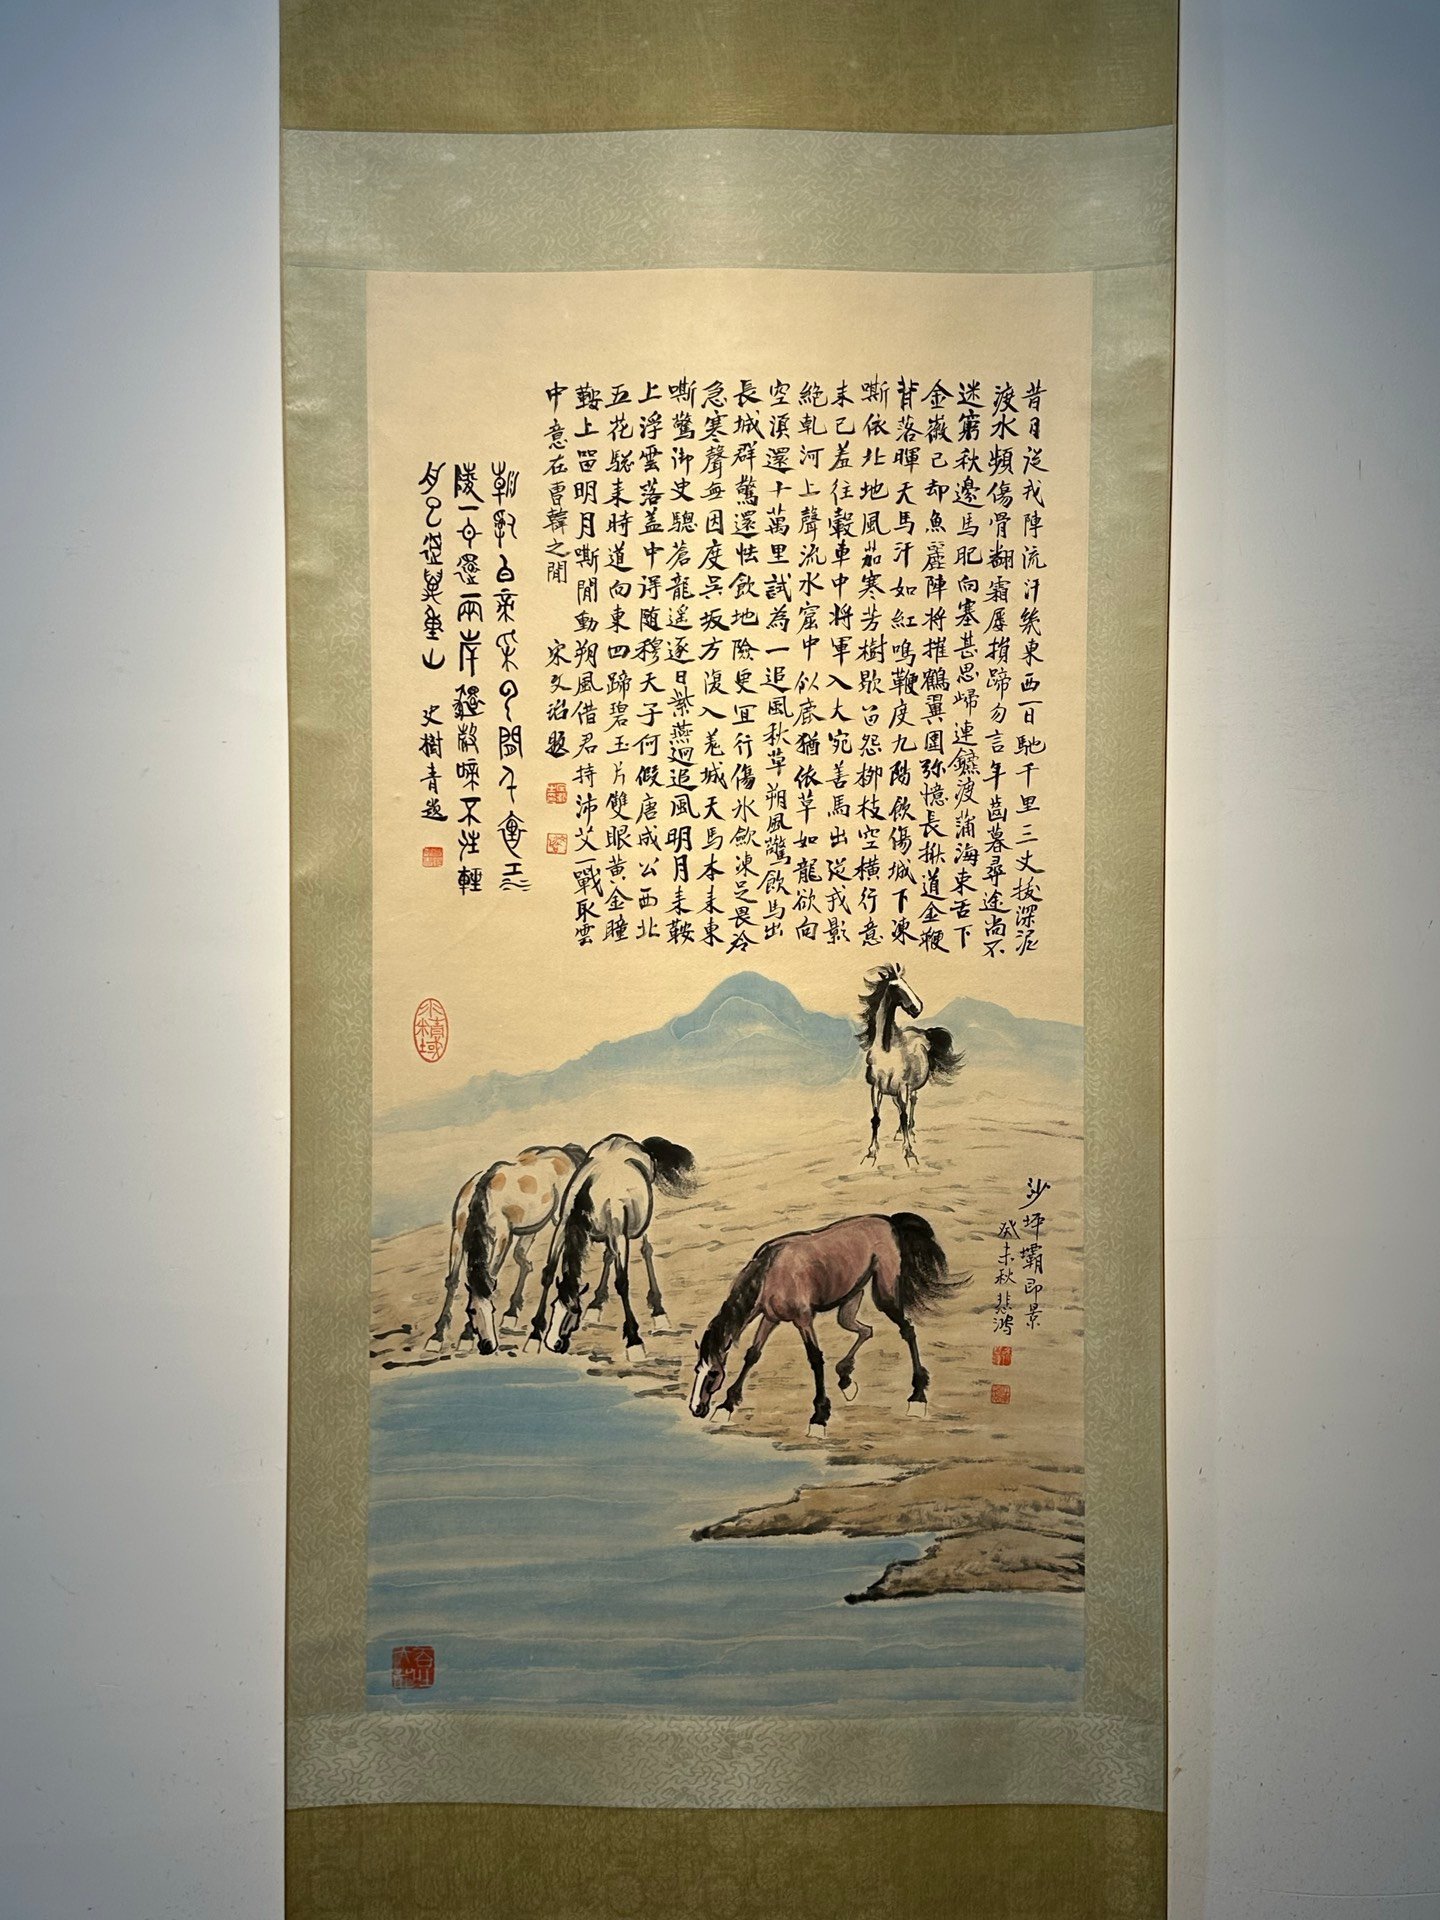 昔日從戎陣流汗幾東西一日馳千里三丈拔深泥
渡水頻傷骨翻霜屢損蹄勿言年齒暮尋途尚不
迷窮秋邊馬肥向塞甚思歸連鑣渡蒲海東舌下
金微已却魚麗陣將摧鶴翼圍弥憶長楸道金鞭
背落暉天馬汗如紅鳴鞭度九陽飲傷城下凍
嘶依北地風茄寒芳樹歇笛怨柳枝空橫行意
未已羞往轂車中將軍入大宛善馬出從戎影
絕乹河上聲流水窟中似鹿猶依草如龍欲向
空須還十萬里試為一追風秋草朔風驚飲馬出
長城群驚還怯飲地險更宜行傷氷歛凍足畏冷
急寒聲每因度吳坂方復入羌城天馬本来東
嘶驚御史驄蒼龍遥逐日紫燕迥追風明月来鞍
上浮雲落盖中得随穆天子何假唐成公西北
五花驄来時道向東四蹄碧玉片雙眼黃金瞳
鞍上留明月嘶間動朔風借君持沛艾一戰取雲
中意在曹韓之間 宋文治題
朝辞白帝彩雲間千里江
陵一日還兩岸猿聲啼不住輕
舟已過萬重山 史樹青題
沙坪壩即景
癸未秋 悲鴻